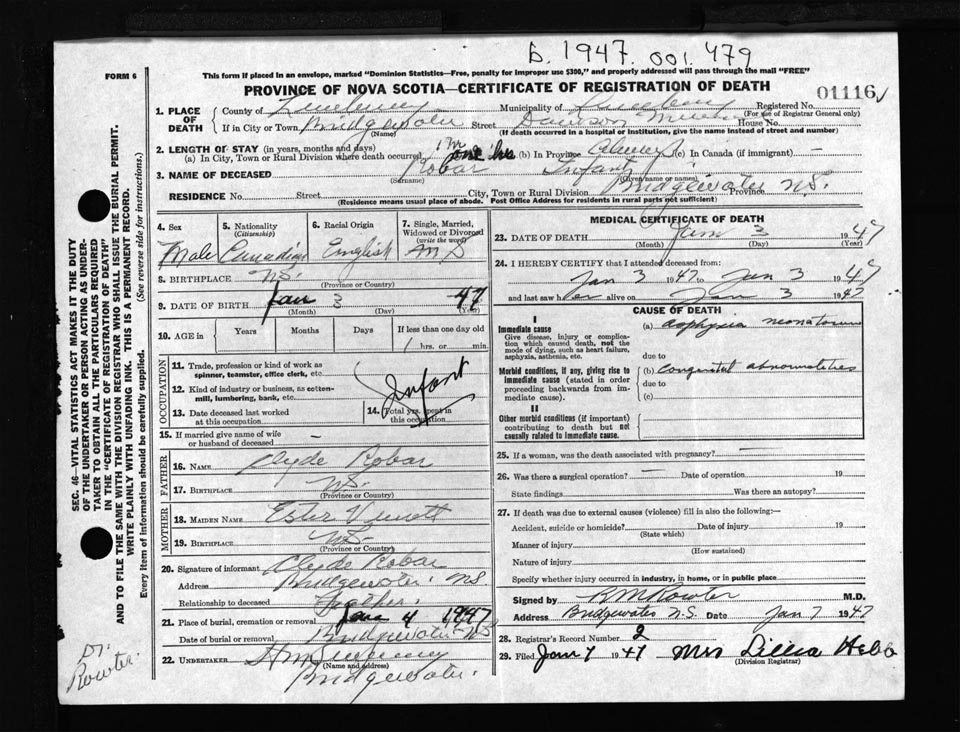 D. 1947. 001. 479
FORM 6
This form if placed in an envelope, marked "Dominion Statistics—Free, penalty for improper use $300," and properly addressed will pass through the mail "FREE"
PROVINCE OF NOVA SCOTIA—CERTIFICATE OF REGISTRATION OF DEATH
01116
1. PLACE OF DEATH County of Lunenburg Municipality of Lunenburg Registered No.
(For use of Registrar General only)
If in City or Town Bridgewater Street Dawson House No.
(Name) (If death occurred in a hospital or institution, give the name instead of street and number)
2. LENGTH OF STAY (in years, months and days)
(a) In City, Town or Rural Division where death occurred 1 hr one hr (b) In Province Always (c) In Canada (if immigrant) —
3. NAME OF DECEASED Robar Infant
(Surname) (Given name or names)
RESIDENCE No. Street City, Town or Rural Division Bridgewater Province N.S.
(Residence means usual place of abode. Post Office Address for residents in rural parts not sufficient)
SEC. 46—VITAL STATISTICS ACT MAKES IT THE DUTY
OF THE UNDERTAKER OR PERSON ACTING AS UNDER-
TAKER TO OBTAIN ALL THE PARTICULARS REQUIRED
IN THE "CERTIFICATE OF REGISTRATION OF DEATH"
AND TO FILE THE SAME WITH THE DIVISION REGISTRAR WHO SHALL ISSUE THE BURIAL PERMIT.
WRITE PLAINLY WITH UNFADING INK. THIS IS A PERMANENT RECORD.
Every item of information should be carefully supplied. (See reverse side for instructions.)
4. Sex 5. Nationality (Citizenship) 6. Racial Origin 7. Single, Married, Widowed or Divorced (write the word)
Male Canadian English S
8. BIRTHPLACE N.S.
(Province or Country)
9. DATE OF BIRTH Jan 3 47
(Month) (Day) (Year)
10. AGE in Years Months Days If less than one day old
1 hrs. or min.
OCCUPATION
11. Trade, profession or kind of work as spinner, teamster, office clerk, etc.
12. Kind of industry or business, as cotten-mill, lumbering, bank, etc.
Infant
13. Date deceased last worked at this occupation 14. Total yrs. spent in this occupation
15. If married give name of wife or husband of deceased —
FATHER
16. NAME Clyde Robar
17. BIRTHPLACE N.S.
(Province or Country)
MOTHER
18. MAIDEN NAME Ester
19. BIRTHPLACE N.S.
(Province or Country)
20. Signature of informant Clyde Robar
Address Bridgewater N.S.
Relationship to deceased Father
21. Place of burial, cremation or removal Jan 4 1947
Date of burial or removal Bridgewater N.S.
22. UNDERTAKER
(Name and address)
Bridgewater.
Dr. Rowter.
MEDICAL CERTIFICATE OF DEATH
23. DATE OF DEATH Jan 3 1947
(Month) (Day) (Year)
24. I HEREBY CERTIFY that I attended deceased from:
Jan 3 1947 to Jan 3 1947
and last saw h er alive on Jan 3 1947
CAUSE OF DEATH
I
Immediate cause (a) asphyxia neonatorum
Give disease, injury or complication which caused death, not the mode of dying, such as heart failure, asphyxia, asthenia, etc.
due to
Morbid conditions, if any, giving rise to immediate cause (stated in order proceeding backwards from immediate cause). (b) congenital abnormalities
due to
(c)
II
Other morbid conditions (if important) contributing to death but not causally related to immediate cause.
25. If a woman, was the death associated with pregnancy? —
26. Was there a surgical operation? — Date of operation 19
State findings Was there an autopsy?
27. If death was due to external causes (violence) fill in also the following:—
Accident, suicide or homicide? Date of injury 19
(State which)
Manner of injury
(How sustained)
Nature of injury
Specify whether injury occurred in industry, in home, or in public place
Signed by B M Rowter M.D.
Address Bridgewater N.S. Date Jan 7 1947
28. Registrar's Record Number 2
29. Filed Jan 7 1947 Mrs Lillia Hebb
(Division Registrar)